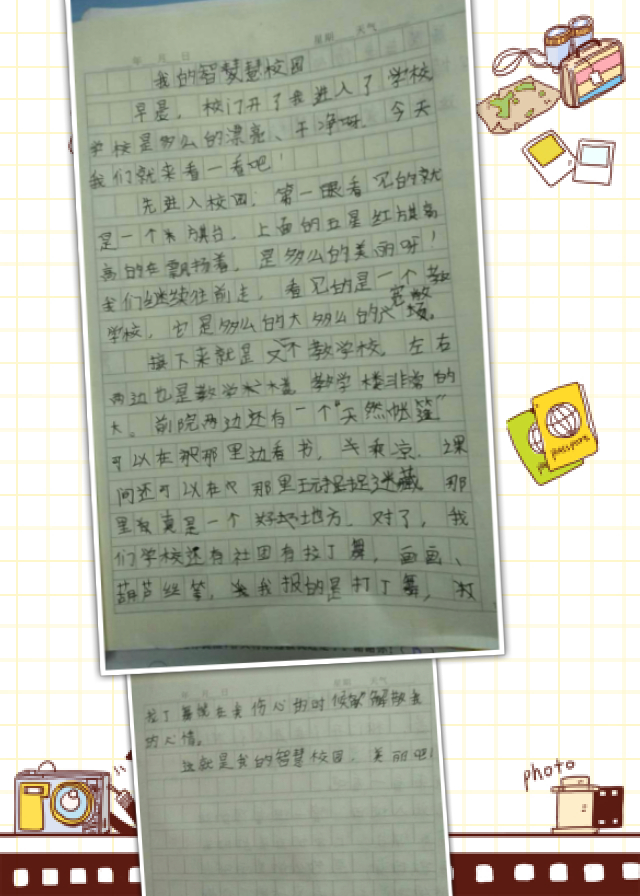 年 月 日 星期 天气
我的智慧校园
早晨，校门开了我进入了学校
学校是多么的漂亮、干净呀。今天
我们就来看一看吧！
先进入校园，第一眼看见的就
是一个 旗台，上面的五星红旗高
高的在飘扬着，是多么的美丽呀！
我们继续往前走，看见的是一个教
学校，它是多么的大多么的宽敞。
接下来就是 教学校。左右
两边也是教学 教学楼非常的
大。前院两边还有一个“天然帐篷”
可以在那里边看书， 乘凉，课
间还可以在 那里玩捉迷藏。那
里 真是一个好地方。对了，我
们学校还有社团有拉丁舞，画画、
葫芦丝等，我报的是打丁舞，
年 月 日 星期 天气
拉丁舞能在我伤心的时候 解散我
的心情。
这就是我的智慧校园，美丽吧！
passport
photo